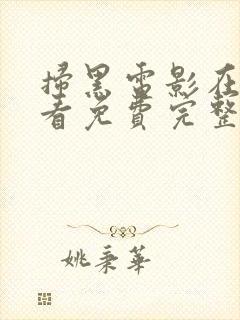 掃黑電影在
看免費完整
姚秉華